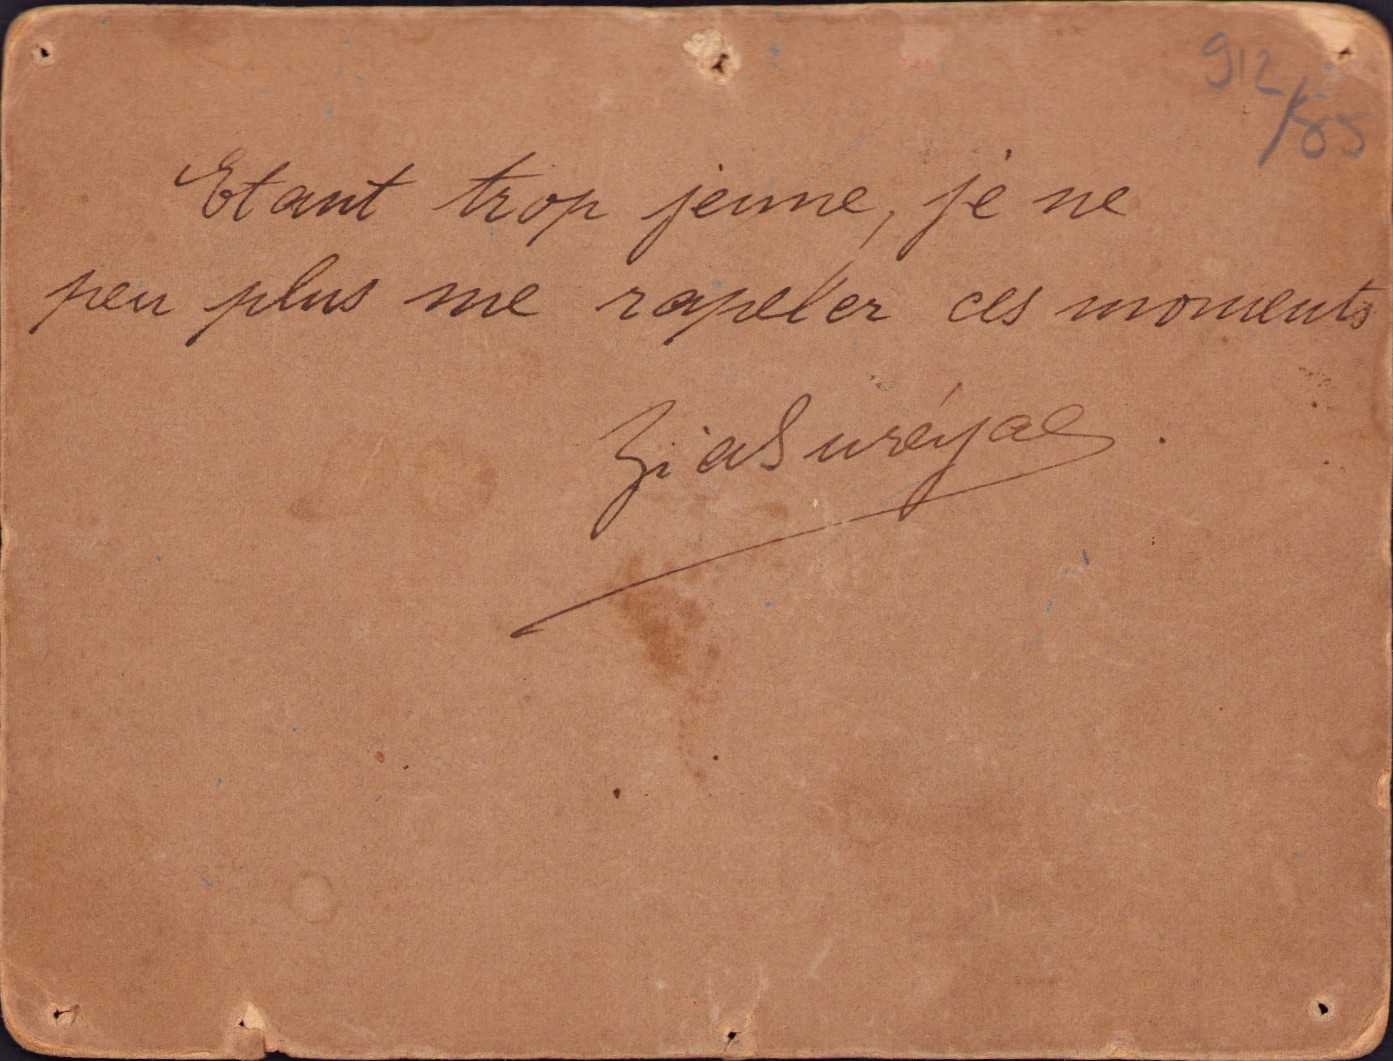 912/85
Etant trop jeune, je ne
peu plus me rapeler ces moments
Zia Suréya